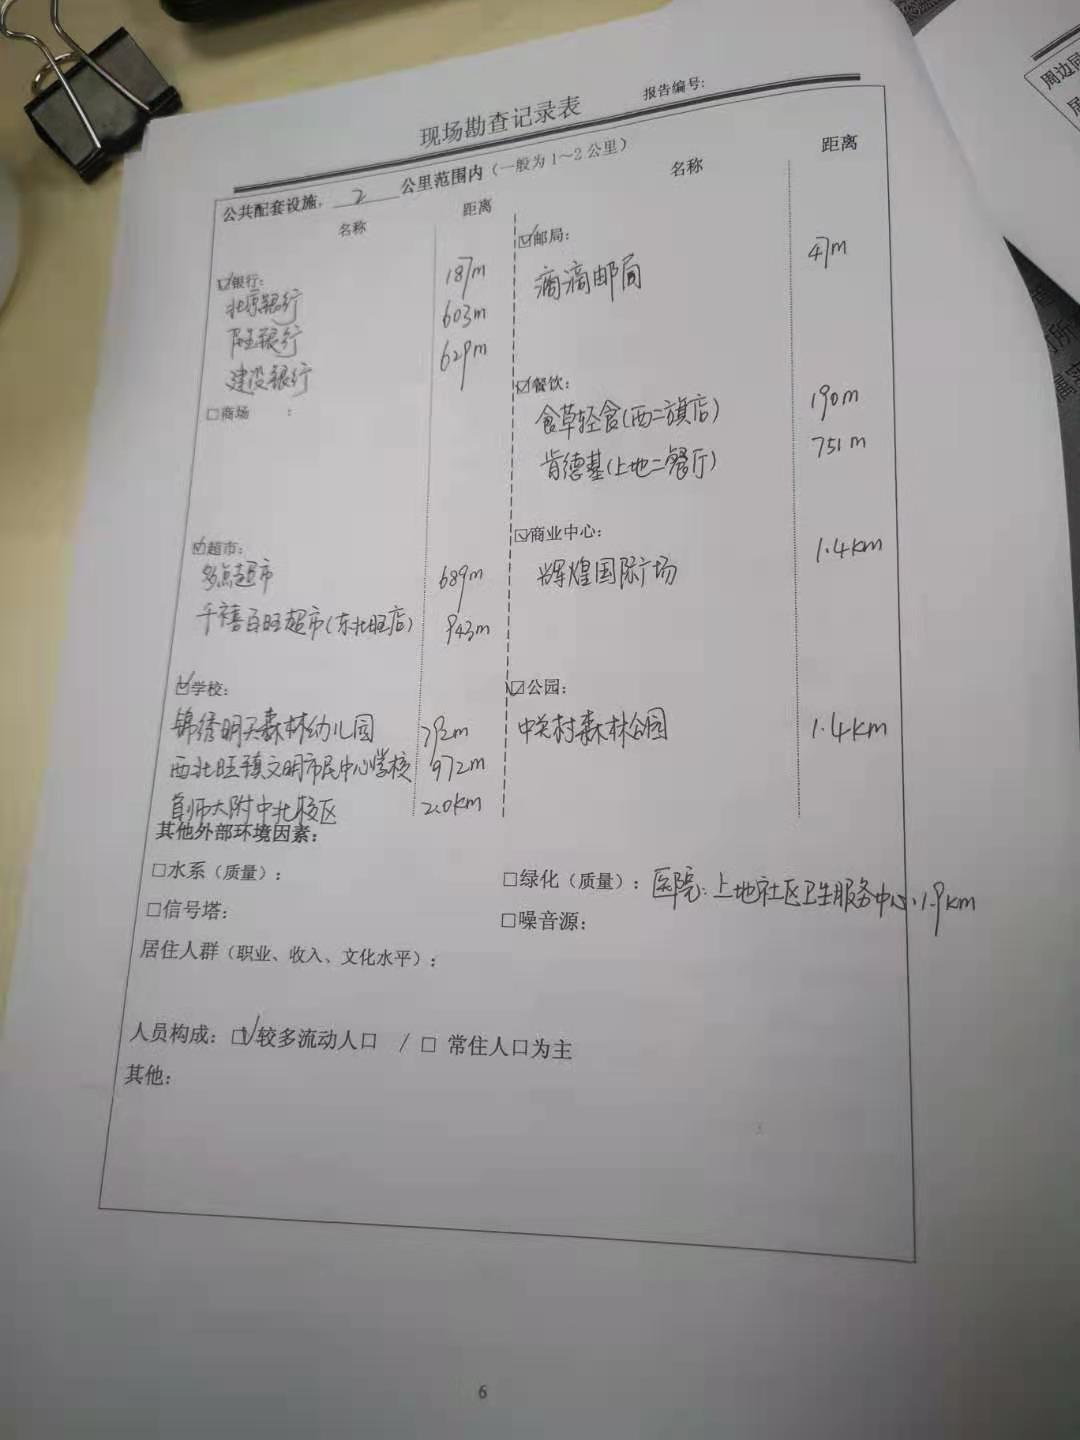 现场勘查记录表
报告编号:
公共配套设施, 2 公里范围内(一般为1～2公里)
名称 距离
名称 距离
☑银行:
北京银行 187m
603m
建设银行 629m
□商场 :
☑超市:
多点超市 689m
千禧百旺超市(东北旺店) 943m
☑学校:
锦绣明天森林幼儿园
西北旺镇文明市民中心学校 972m
首师大附中北校区 2.0km
☑邮局:
滴滴邮局 47m
☑餐饮:
食草轻食(西二旗店) 190m
肯德基(上地二餐厅) 751m
☑商业中心:
辉煌国际广场 1.4km
☑公园:
中关村森林公园 1.4km
其他外部环境因素:
□水系(质量):
□绿化(质量): 医院: 上地社区卫生服务中心.1.9km
□信号塔:
□噪音源:
居住人群(职业、收入、文化水平):
人员构成: ☑较多流动人口 / □ 常住人口为主
其他:
6
周边同